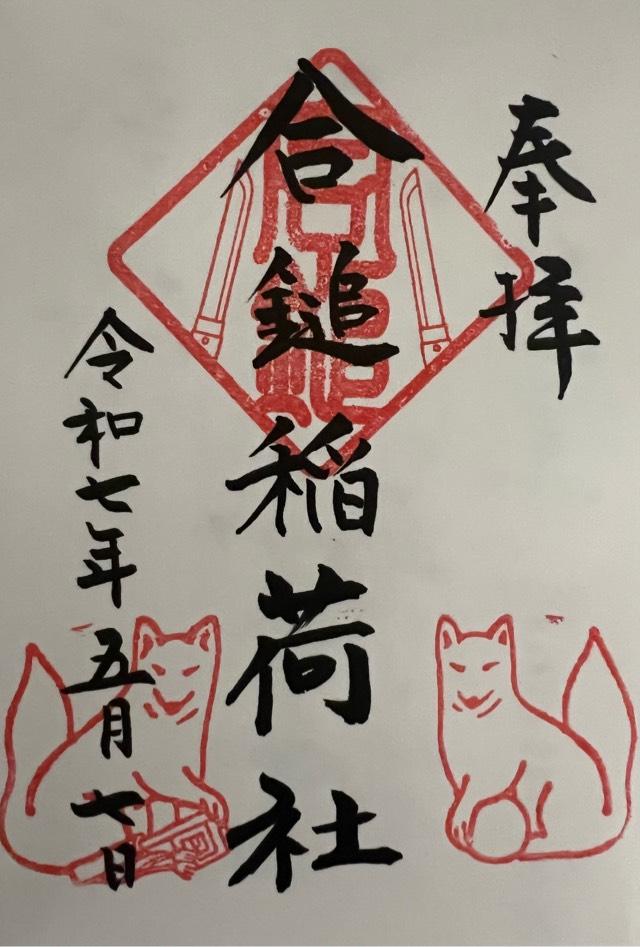 奉拝
合鎚稲荷社
令和七年五月七日